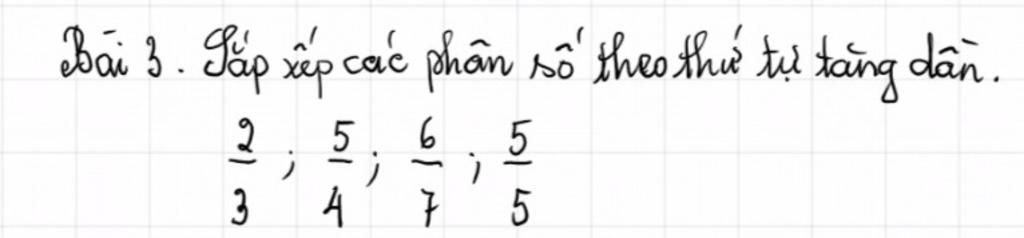 Bài 3. Sắp xếp các phân số theo thứ tự tăng dần.
2/3 ; 5/4 ; 6/7 ; 5/5